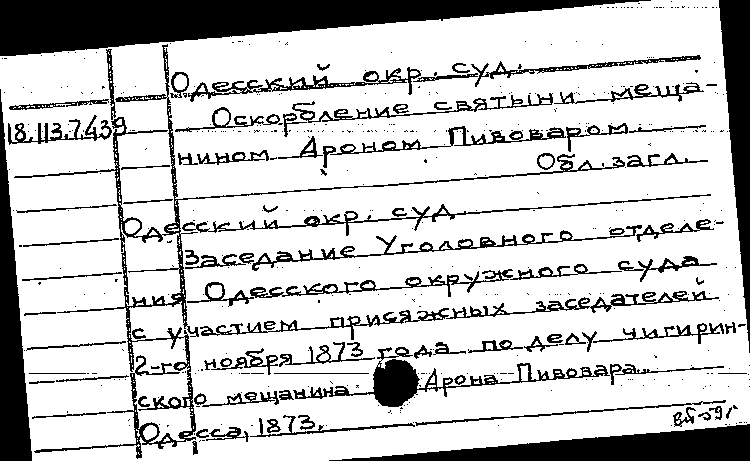 Одесский окр. суд.
Оскорбление святыни меща-
18.113.7.439
нином Ароном Пивоваром.
Обл. загл.
Одесский окр. суд
Заседание Уголовного отделе-
ния Одесского окружного суда
с участием присяжных заседателей
2-го ноября 1873 года по делу чигирин-
ского мещанина Арона Пивовара.
Одесса, 1873.